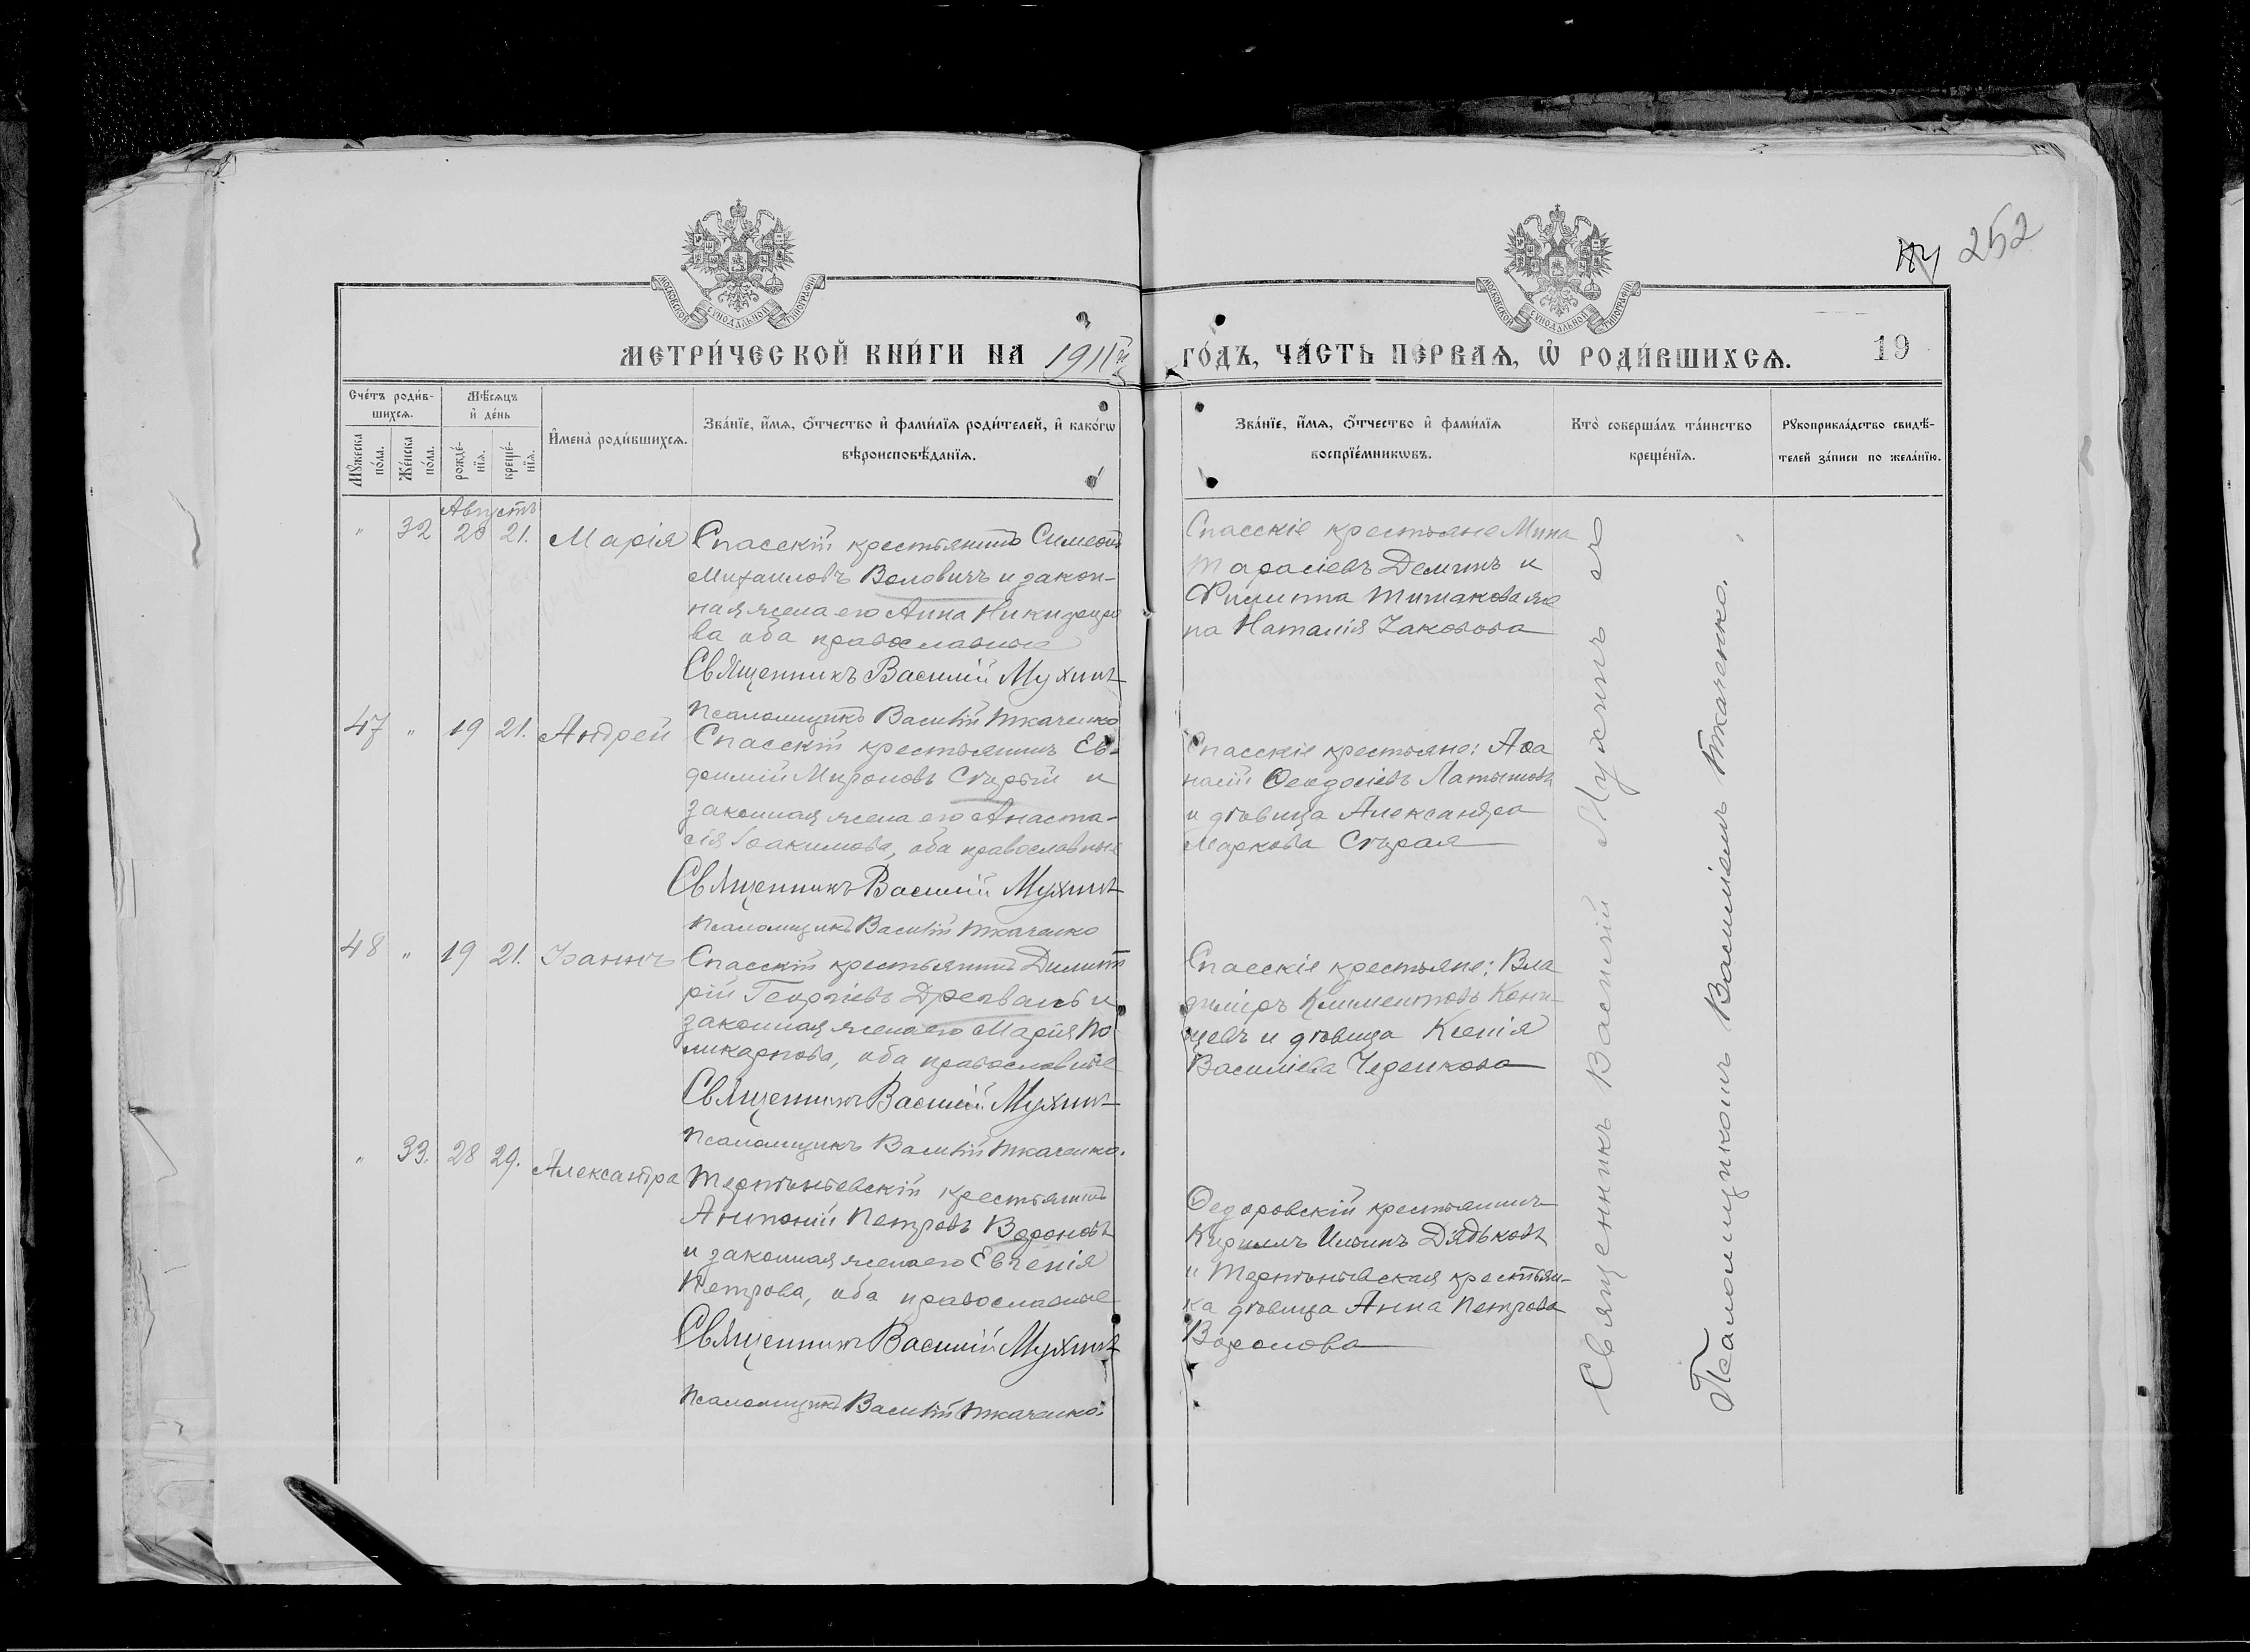 252
МОСКОВСКОЙ СУНОДАЛЬНОЙ ТИПОГРАФІИ
МОСКОВСКОЙ СУНОДАЛЬНОЙ ТИПОГРАФІИ
МЕТРИ́ЧЕСКОЙ КНИ́ГИ НА 1911й ГО́ДЪ, ЧА́СТЬ ПЕ́РВАѦ, Ѡ РОДИ́ВШИХСѦ.
19
Сче́тъ роди́в-
шихсѧ.
Мꙋ́жеска по́ла.
Же́нска по́ла.
Мѣ́сѧцъ
и҆ де́нь
рожде́-
нїѧ.
креще́-
нїѧ.
И҆мена̀ роди́вшихсѧ.
Зва́нїе, и҆́мѧ, ѻ҆́тчество и҆ фами́лїѧ роди́телей, и҆ како́гѡ
вѣроисповѣ́данїѧ.
Зва́нїе, и҆́мѧ, ѻ҆́тчество и҆ фами́лїѧ
воспрїе́мникѡвъ.
Кто̀ соверша́лъ та́инство
креще́нїѧ.
Рꙋкоприкла́дство свидѣ́-
телей за́писи по жела́нїю.
Августъ
" 32 20 21. Марія
Спасскій крестьянинъ Симеонъ
Михаиловъ Воловичъ и закон-
ная жена его Анна Никифоро
ва оба православные
Священникъ Василій Мухинъ
Псаломщикъ Василій Ткаченко
Спасскіе крестьяне Мина
Тарасіевъ Деминъ и
Филиппа жена
Наталія Іаковова
47 " 19 21. Андрей
Спасскій крестьянинъ Ев-
фимій Мироновъ Старый и
законная жена его Анаста-
сія Іоакимова, оба православные
Священникъ Василій Мухинъ
Псаломщикъ Василій Ткаченко
Спасскіе крестьяне: Аѳа
насій Ѳеодосіевъ Латышовъ
и дѣвица Александра
Маркова Старая
48 " 19 21. Іоаннъ
Спасскій крестьянинъ Димит
рій Георгіевъ Древаль и
законная жена его Марія По
ликарпова, оба православные
Священникъ Василій Мухинъ
Псаломщикъ Василій Ткаченко.
Спасскіе крестьяне: Вла
димиръ Климентовъ Кони-
щевъ и дѣвица Ксенія
Василіева Черенкова
" 33. 28 29. Александра
Терпѣньевскій крестьянинъ
Антоній Петровъ Вороновъ
и законная жена его Евгенія
Петрова, оба православные
Священникъ Василій Мухинъ
Псаломщикъ Василій Ткаченко.
Ѳедоровскій крестьянинъ
Кириллъ Ильинъ Дядьковъ
и Терпѣньевская крестьян-
ка дѣвица Анна Петрова
Воронова
Священникъ Василій Мухинъ съ
Псаломщикомъ Василіемъ Ткаченко.